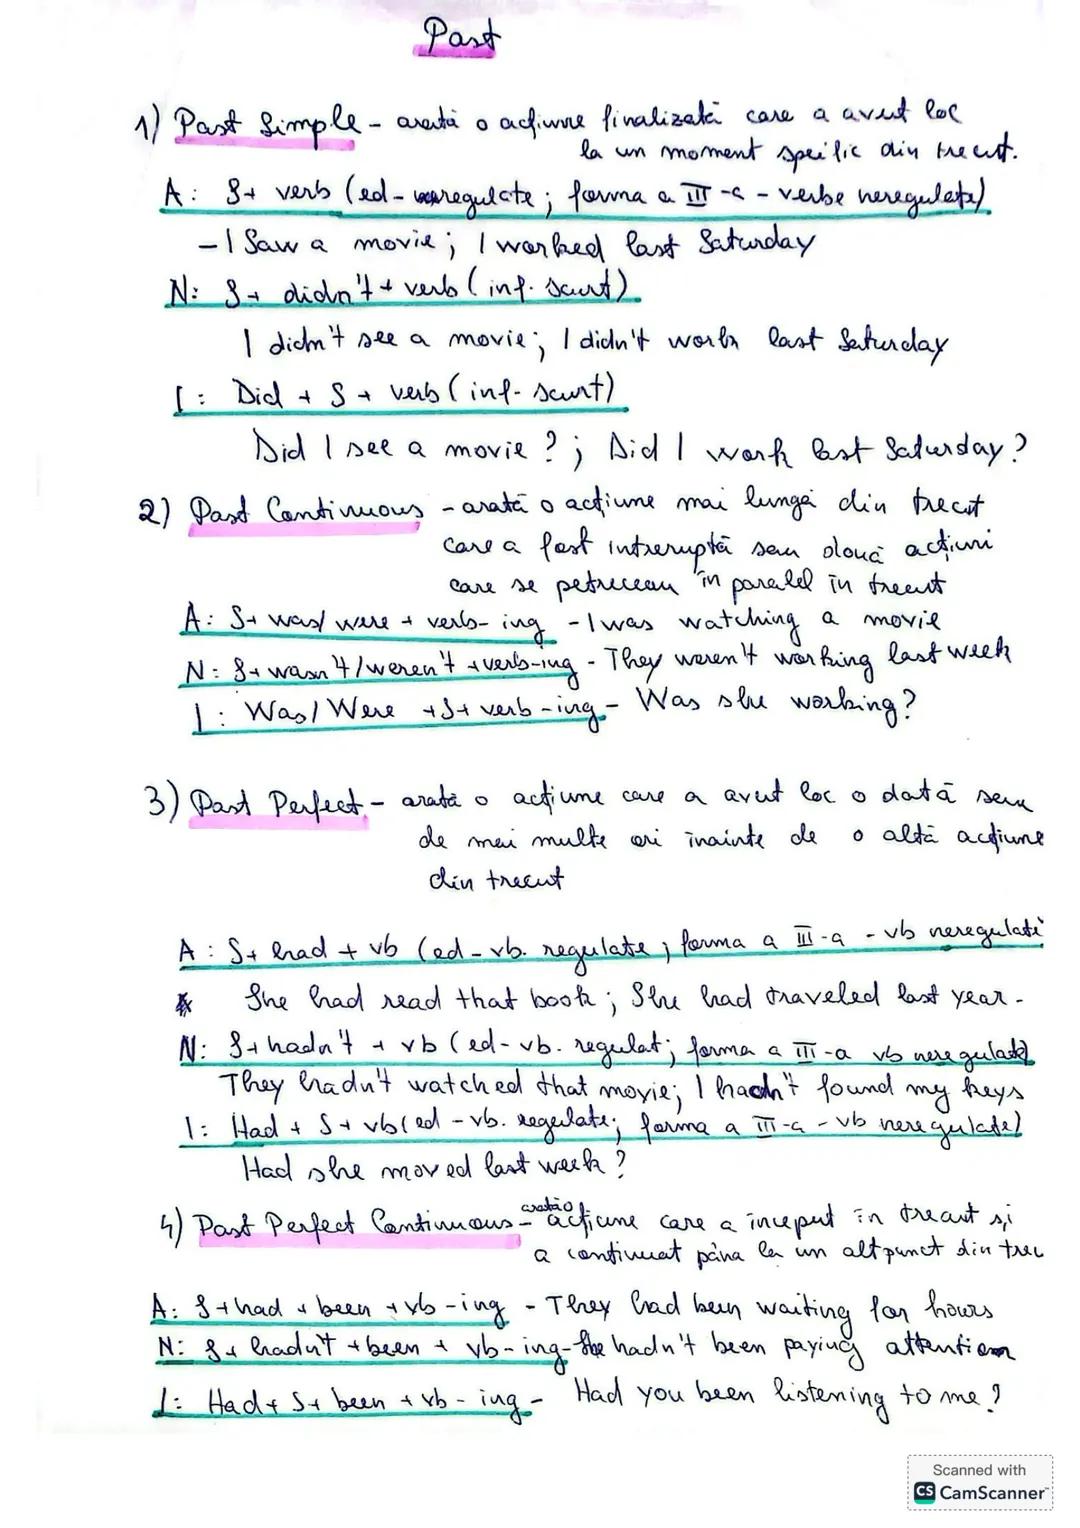 Past
1) Past Simple - arată o acțiune finalizată care a avut loc
la un moment specific din trecut.
A: S+ verb (ed - regulate; forma a III-a - verbe neregulate)
- I saw a movie; I worked last Saturday
N: S+ didn't + verb (inf. scurt).
I didn't see a movie; I didn't work last Saturday
I: Did + S + verb (inf. scurt)
Did I see a movie?; Did I work last Saturday?
2) Past Continuous - arată o acțiune mai lungă din trecut
care a fost întreruptă sau două acțiuni
care se petreceau în paralel în trecut
A: S+ was/were + verb-ing - I was watching a movie
N: S+ wasn't/weren't + verb-ing - They weren't working last week
I: Was/Were + S + verb-ing - Was she working?
3) Past Perfect - arată o acțiune care a avut loc o dată sau
de mai multe ori înainte de o altă acțiune
din trecut
A: S+ had + vb (ed - vb. regulate; forma a III-a - vb neregulate
She had read that book; She had traveled last year.
N: S+ hadn't + vb (ed - vb. regulat; forma a III-a vb neregulate)
They hadn't watched that movie; I hadn't found my keys
I: Had + S + vb (ed - vb. regulate; forma a III-a - vb neregulate)
Had she moved last week?
4) Past Perfect Continuous - arată o acțiune care a început în trecut și
a continuat până la un alt punct din trec
A: S + had + been + vb-ing - They had been waiting for hours
N: S+ hadn't + been + vb-ing - She hadn't been paying attention
I: Had + S + been + vb-ing - Had you been listening to me?
Scanned with
CS CamScanner